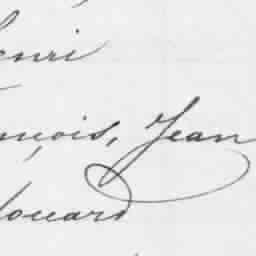 enri
nçois, Jean
douard